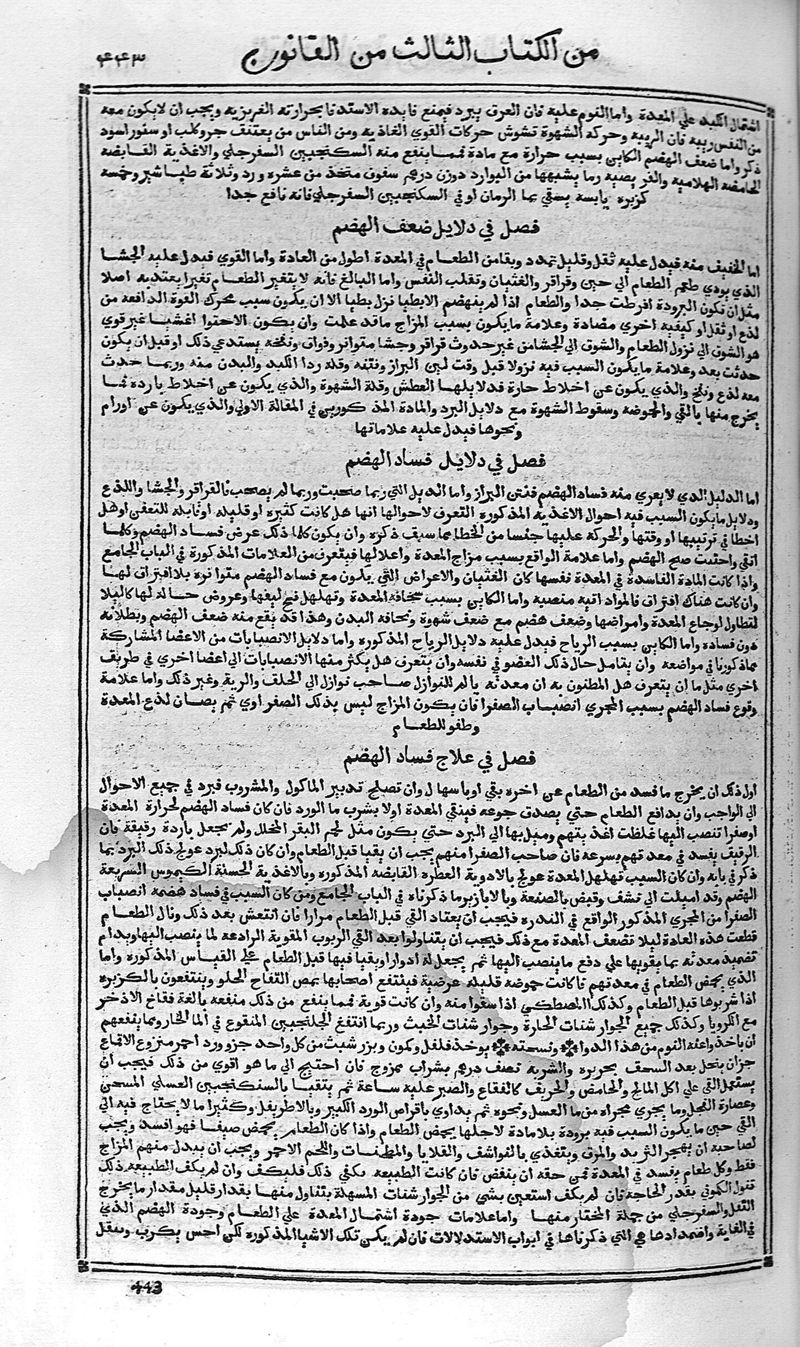 من الكتاب الثالث من القانون
٤٤٣
اشتمال الكبد علي المعدة واما النوم عليه فان العرق يبرد فيمنع فايده الاستدفا بحرارته الغريزيه ويجب ان لا يكون معه
من النفس ريبه فان الريبه وحركه الشهوة تشوش حركات القوي الغاذيه ومن الناس من يعتنف جروكلب او سنور اسود
ذكر واما ضعف الهضم الكاين بسبب حرارة مع مادة فمما ينفع منه السكنجبين السفرجلي والاغذية القابضه
الحامضه الهلاميه والقريصيه وما يشبهها من البوارد ووزن درهم سفوف متخذ من عشره ورد وثلاثة طباشير وخمسه
كزبره يابسه يسقي بما الرمان او في السكنجبين السفرجلي فانه نافع جدا
فصل في دلايل ضعف الهضم
اما الخفيف منه فيدل عليه ثقل وقليل تمدد وبقا من الطعام في المعدة اطول من العادة واما القوي فيدل عليه الجشا
الذي يودي طعم الطعام الي حين وقراقر والغثيان وتقلب النفس واما البالغ فانه لا يتغير الطعام تغيرا يعتد به اصلا
مثل ان تكون البرودة افرطت جدا والطعام اذا لم ينهضم الا بطيا نزل بطيا الا ان يكون سبب محرك القوة الدافعه من
لذع او ثقل او كيفيه اخري مضادة وعلامة ما يكون بسبب المزاج ما قد علمت وان يكون الاحتوا غير قوي
هو الشوق الي نزول الطعام والشوق الي الجشا من غير حدوث قراقر وجشا متواتر وفواق ونفخه يستدعي ذلك او قبل ان يكون
حدثت بعد وعلامة ما يكون السبب فيه نزولا قبل وقت لين البراز ونتنه وقله ردا الكبد والبدن منه وربما حدث
معه لذع ونفخ والذي يكون عن اخلاط حارة فدلايلها العطش وقلة الشهوة والذي يكون عن اخلاط باردة فما
يخرج منها بالقي والحموضه وسقوط الشهوة مع دلايل البرد والمادة المذكورين في المقالة الاولي والذي يكون عن اورام
ونحوها فيدل عليه علاماتها
فصل في دلايل فساد الهضم
اما الدليل الذي لا يعري منه فساد الهضم فنتن البراز واما الدليل التي ربما صحبت وربما لم يصحب فالقراقر والجشا واللذع
ودلايل ما يكون السبب فيه احوال الاغذيه المذكوره التعرف لاحوالها انها هل كانت كثيره او قليله او قابله للتعفن او هل
اخطا في ترتيبها او وقتها والحركه عليها جنسا من الخطا مما سبق ذكره وان يكون كلما ذلك عرض فساد الهضم وكلما
اتقي واجتنب صلح الهضم واما علامة الواقع بسبب مزاج المعدة واعلالها فيتعرف من العلامات المذكورة في الباب الجامع
واذا كانت المادة الفاسدة في المعدة نفسها كان الغثيان والاعراض التي يكون مع فساد الهضم متواتره بلا افتراق لها
وان كانت هناك افتراق فالمواد اتيه منصبه واما الكاين بسبب سخافه المعدة وتهلهل نسج ليفها وعروض حاله لها كالبلا
لتطاول اوجاع المعدة وامراضها وضعف هضم مع ضعف شهوة ونحافة البدن وهذا قد يقع منه ضعف الهضم وبطلانه
دون فساده واما الكاين بسبب الرياح فيدل عليه دلايل الرياح المذكوره واما دلايل الانصبابات من الاعضا المشاركة
مما ذكورنا في مواضعه وان يتامل حال ذلك العضو في نفسه وان يتعرف هل يكثر منها الانصبابات الي اعضا اخري في طريف
اخري مثل ما ان يتعرف هل المظنون به ان معدته يالم للنوازل صاحب نوازل الي الحلف والرية وغير ذلك واما علامة
وقوع فساد الهضم بسبب المجري انصباب الصفرا فان يكون المزاج ليس بذلك الصفراوي ثم يصان لذع المعدة
وطفو للطعام
فصل في علاج فساد الهضم
اول ذلك ان يخرج ما فسد من الطعام عن اخره بقي او باسهال وان تصلح تدبير الماكول والمشروب فيرد في جميع الاحوال
الي الواجب وان يدافع الطعام حتي يصدق جوعه فينقي المعدة اولا بشرب ما الورد فان كان فساد الهضم لحرارة المعدة
او صفرا تنصب اليها غلظت اغذيتهم وميل بها الي البرد حتي يكون مثل لحم البقر المخلل ولم يجعل باردة رقيقة فان
الرقيق يفسد في معدتهم بسرعه فان صاحب الصفرا منهم يجب ان يقيا قبل الطعام وان كان ذلك لبرد عولج ذلك البرد بما
ذكر في بابه وان كان السبب تهلهل المعدة عولج بالادوية العطره القابضه المذكوره وبالاغذية الحسنة الكيموس السريعة
الهضم وقد اميلت الي نشف وقبض بالصنعة وبالابازير مما ذكرناه في الباب الجامع ومن كان السبب في فساد هضمه انصباب
الصفرا من المجري المذكور الواقع في الندره فيجب ان يعتاد القي قبل الطعام مرارا فان انتعش بعد ذلك ونال الطعام
قطعت هذه العادة ليلا تضعف المعدة مع ذلك فيجب ان يتناولوا بعد القي الربوب المقوية الرادعه لما ينصب اليها ويدام
تضميد معدته بما يقويها علي دفع ما ينصب اليها ثم يجعل له ادوارا ويقيا فيها قبل الطعام علي القياس المذكوره واما
الذي يحمض الطعام في معدتهم فاكانت حموضه قليله عرضية فينتفع اصحابها بمص التفاح الحلو وينتفعون بالكزبره
اذا شربوها قبل الطعام وكذلك المصطكي اذا سقوا منه وان كانت قوية فمما ينفع من ذلك منفعه بالغة فقاح الاذخر
مع الكرويا وكذلك جميع الجوارشنات الحارة وجوارشنات الخبث وربما انتفع الجلنجبين المنقوع في الما الحار ومما ينفعهم
ان ياخذوا عند النوم من هذا الدوا ونسخته يوخذ فلفل وكمون وبزر شبث من كل واحد جزو ورد احمر منزوع الاقماع
جزان ينخل بعد السحق بحريره والشربه نصف درهم بشراب ممزوج فان احتيج الي ما هو اقوي من ذلك فيجب ان
يستعمل القي علي اكل المالح والحامض والحريف كالفقاع والصبر عليه ساعة ثم يتقيا بالسكنجبين العسلي المسخن
وعصارة الفجل وما يجري مجراه من ما العسل ونحوه ثم يداوي باقراص الورد الكبير وبالاطريفل وكثيرا ما لا يحتاج فيه الي
القي حين ما يكون السبب فيه برودة بلا مادة لاجلها يحمض الطعام واذا كان الطعام يحمض صيفا فهو افسد ويجب
لصاحبه ان يهجر الثريد والمرق ويتغذي بالنواشف والقلايا والمطجنات واللحم الاحمر ويجب ان يبدل منهم المزاج
فقط وكل طعام يفسد في المعدة فمن حقه ان ينفض فان كانت الطبيعه يكفي ذلك فليكف وان لم يكف الطبيعه ذلك
تنول الكموني بقدر الحاجة فان لم يكف استعين بشي من الجوارشنات المسهلة يتناول منها بقدار قليل مقدار ما يخرج
الثفل والسفرجلي من جملة المختار منها واما علامات جودة اشتمال المعدة علي الطعام وجودة الهضم الذي
في الغاية واضدادها هي التي ذكرناها في ابواب الاستدلالات فان لم يكن تلك الاشيا المذكوره لكن احس بكرب وثقل
443